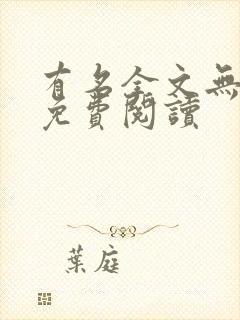 有名全文無
免費閱讀
葉庭